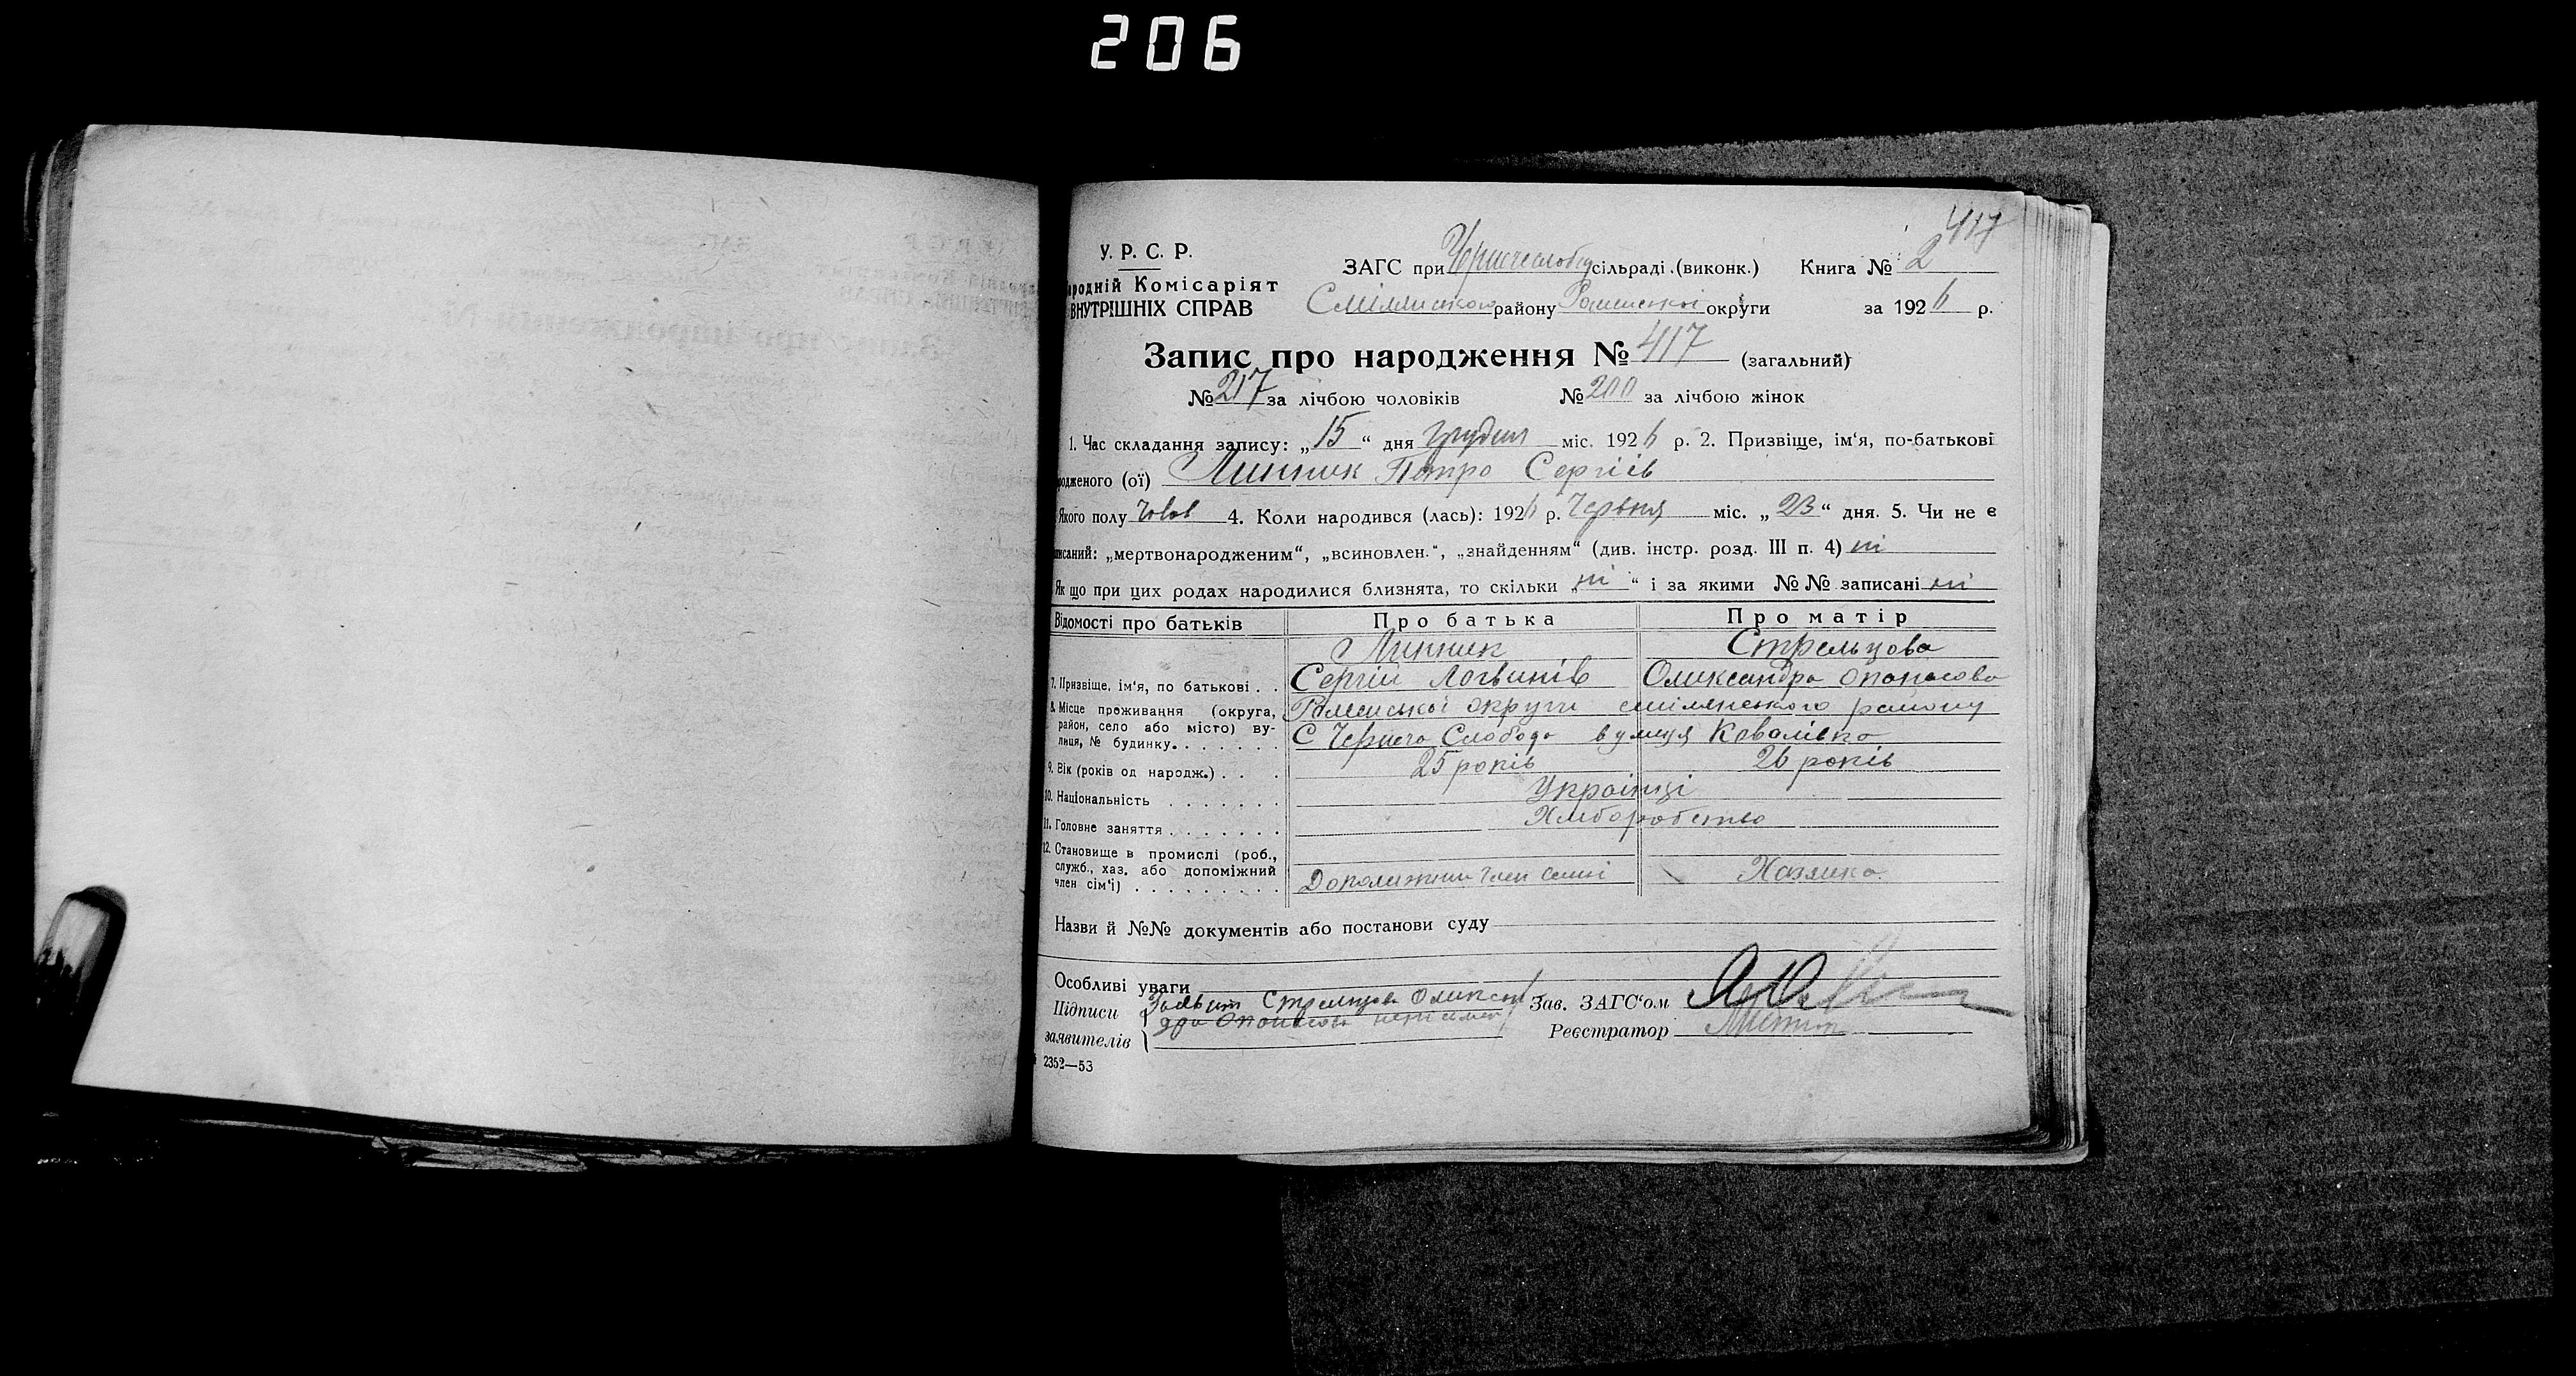 206
417
У. Р. С. Р.
ародній Комісаріят
ВНУТРІШНІХ СПРАВ
ЗАГС при Чернечеслобід сільраді (виконк.) Книга № 2
Смілянського району Роменської округи за 1926 р.
Запис про народження № 417 (загальний)
№ 217 за лічбою чоловіків № 200 за лічбою жінок
1. Час складання запису: „15“ дня грудня міс. 1926 р. 2. Призвіще, ім'я, по-батькові
родженого (ої) Линник Петро Сергіїв
Якого полу чолов 4. Коли народився (лась): 1926 р. Червня міс. „23“ дня. 5. Чи не є
писаний: „мертвонародженим“, „всиновлен.“, „знайденням“ (див. інстр. розд. III п. 4) ні
Як що при цих родах народилися близнята, то скільки „ні“ і за якими №№ записані ні
Відомості про батьків Про батька Про матір
Линник Стрельцова
7. Призвіще, ім'я, по батькові . . Сергій Логвинів Олександра Опанасова
8. Місце проживання (округа, район, село або місто) вулиця, № будинку. Роменської округи смілянського району
С Чернеча Слобода вулиця Ковалівка
9. Вік (років од народж.) . . . 25 років 26 років
10. Національність . . . . . . . Українці
11. Головне заняття . . . . . . . Хліборобство
12. Становище в промислі (роб.,
служб., хаз. або допоміжний
член сім'ї) . . . . . . . . . Допоміжний член семї Хазяйка
Назви й №№ документів або постанови суду
Особливі уваги
Підписи заявителів Стрельцова Олександра Опанасова Зав. ЗАГС'ом
Реєстратор
2352—53